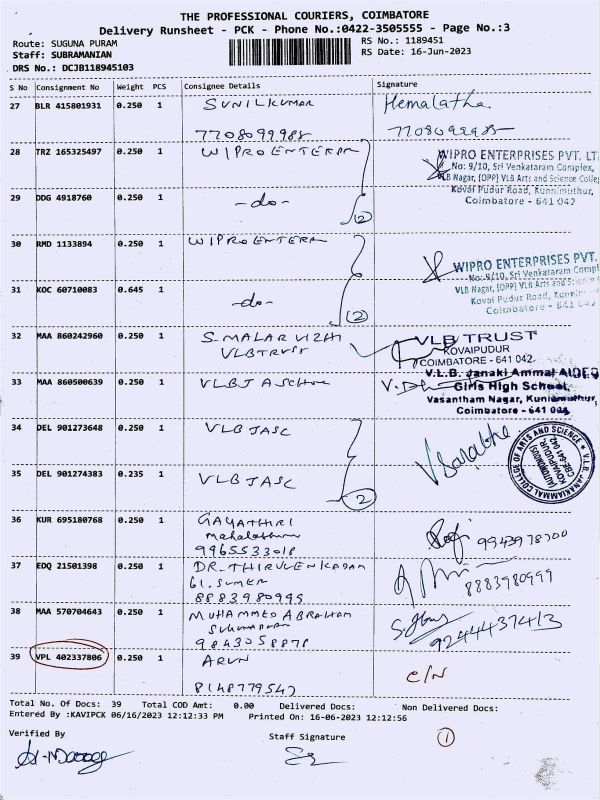 THE PROFESSIONAL COURIERS, COIMBATORE
Delivery Runsheet - PCK - Phone No.:0422-3505555 - Page No.:3
Route: SUGUNA PURAM RS No.: 1189451
Staff: SUBRAMANIAN RS Date: 16-Jun-2023
DRS No.: DCJB118945103
S No Consignment No Weight PCS Consignee Details Signature
27 BLR 415801931 0.250 1 SUNILKUMAR Hemalatha.
7708099988 7708099988
28 TRZ 165325497 0.250 1 WIPRO ENTERPR WIPRO ENTERPRISES PVT. LT
No: 9/10, Sri Venkataram Complex,
VLB Nagar, (OPP) VLB Arts and Science Colleg
Kovai Pudur Road, Kunnimuthur,
Coimbatore - 641 042
29 DDG 4918760 0.250 1 -do-
(2)
30 RMD 1133894 0.250 1 WIPRO ENTERPR WIPRO ENTERPRISES PVT.
No: 9/10, Sri Venkataram Compl
VLB Nagar, (OPP) VLB Arts and Science
Kovai Pudur Road, Kunnim
Coimbatore - 641 042
31 KOC 60710083 0.645 1 -do-
(2)
32 MAA 860242960 0.250 1 S. MALAR VIZHI VLB TRUST
VLB TRUST KOVAIPUDUR
COIMBATORE - 641 042
33 MAA 860500639 0.250 1 VLBJA School V.L.B. Janaki Ammal AIDED
Girls High School,
Vasantham Nagar, Kuniamuthur,
Coimbatore - 641 008
34 DEL 901273648 0.250 1 VLB JASC
V.L.B. JANAKIAMMAL COLLEGE OF ARTS AND SCIENCE
(AUTONOMOUS)
KOVAIPUDUR,
CBE-641 042
35 DEL 901274383 0.235 1 VLB JASC
(2)
36 KUR 695180768 0.250 1 GAYATHIRI
9965533018 9943978700
37 EDQ 21501398 0.250 1 DR. THIRUVENKADAM
61, SUMER
8883980999 8883980999
38 MAA 570704643 0.250 1 MUHAMMED ABRAHAM
9843058878 9244437413
39 VPL 402337806 0.250 1 ARUN C/N
8148779547
Total No. Of Docs: 39 Total COD Amt: 0.00 Delivered Docs: Non Delivered Docs:
Entered By :KAVIPCK 06/16/2023 12:12:33 PM Printed On: 16-06-2023 12:12:56
Verified By Staff Signature (1)